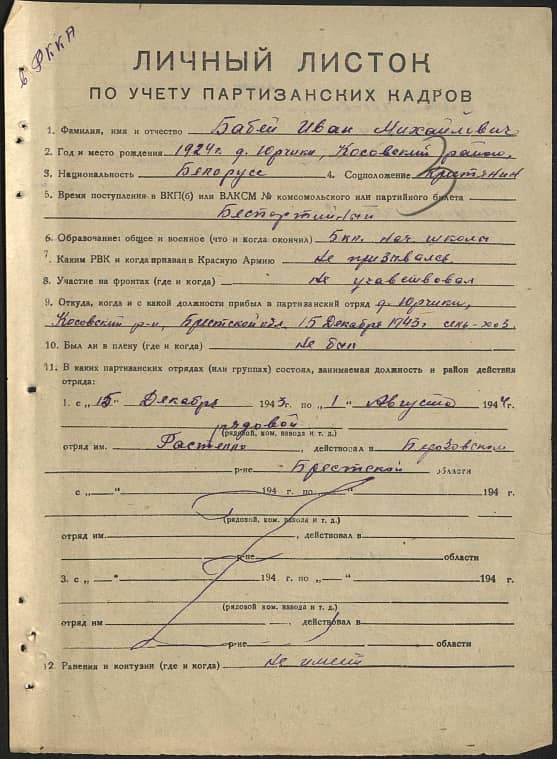 в РККА
ЛИЧНЫЙ ЛИСТОК
ПО УЧЕТУ ПАРТИЗАНСКИХ КАДРОВ
1. Фамилия, имя и отчество Бабей Иван Михайлович
2. Год и место рождения 1924г. д. Юрчики, Косовский район.
3. Национальность Белорусс 4. Соцположение Крестянин
5. Время поступления в ВКП(б) или ВЛКСМ № комсомольского или партийного билета
Беспартийный
6. Образование: общее и военное (что и когда окончил) 5кл. нач. школы
7. Каким РВК и когда призван в Красную Армию Не призывался
8. Участие на фронтах (где и когда) Не учавствовал
9. Откуда, когда и с какой должности прибыл в партизанский отряд д. Юрчики,
Косовский р-н, Брестской обл. 15 Декабря 1943г. сель-хоз.
10. Был ли в плену (где и когда) Не был
11. В каких партизанских отрядах (или группах) состоял, занимаемая должность и район действия
отряда:
1. с „15" Декабря 1943г. по „1" Августа 1944г.
рядовой
(рядовой, ком. взвода и т. д.)
отряд им. , действовал в Березовском
р-не Брестской области
с „ " 194 г. по „ " 194 г.
(рядовой, ком. взвода и т. д.)
отряд им. , действовал в
р-не области
3. с „ " 194 г. по „ " 194 г.
(рядовой, ком. взвода и т. д.)
отряд им , действовал в
р-не области
12. Ранения и контузии (где и когда) Не имеет